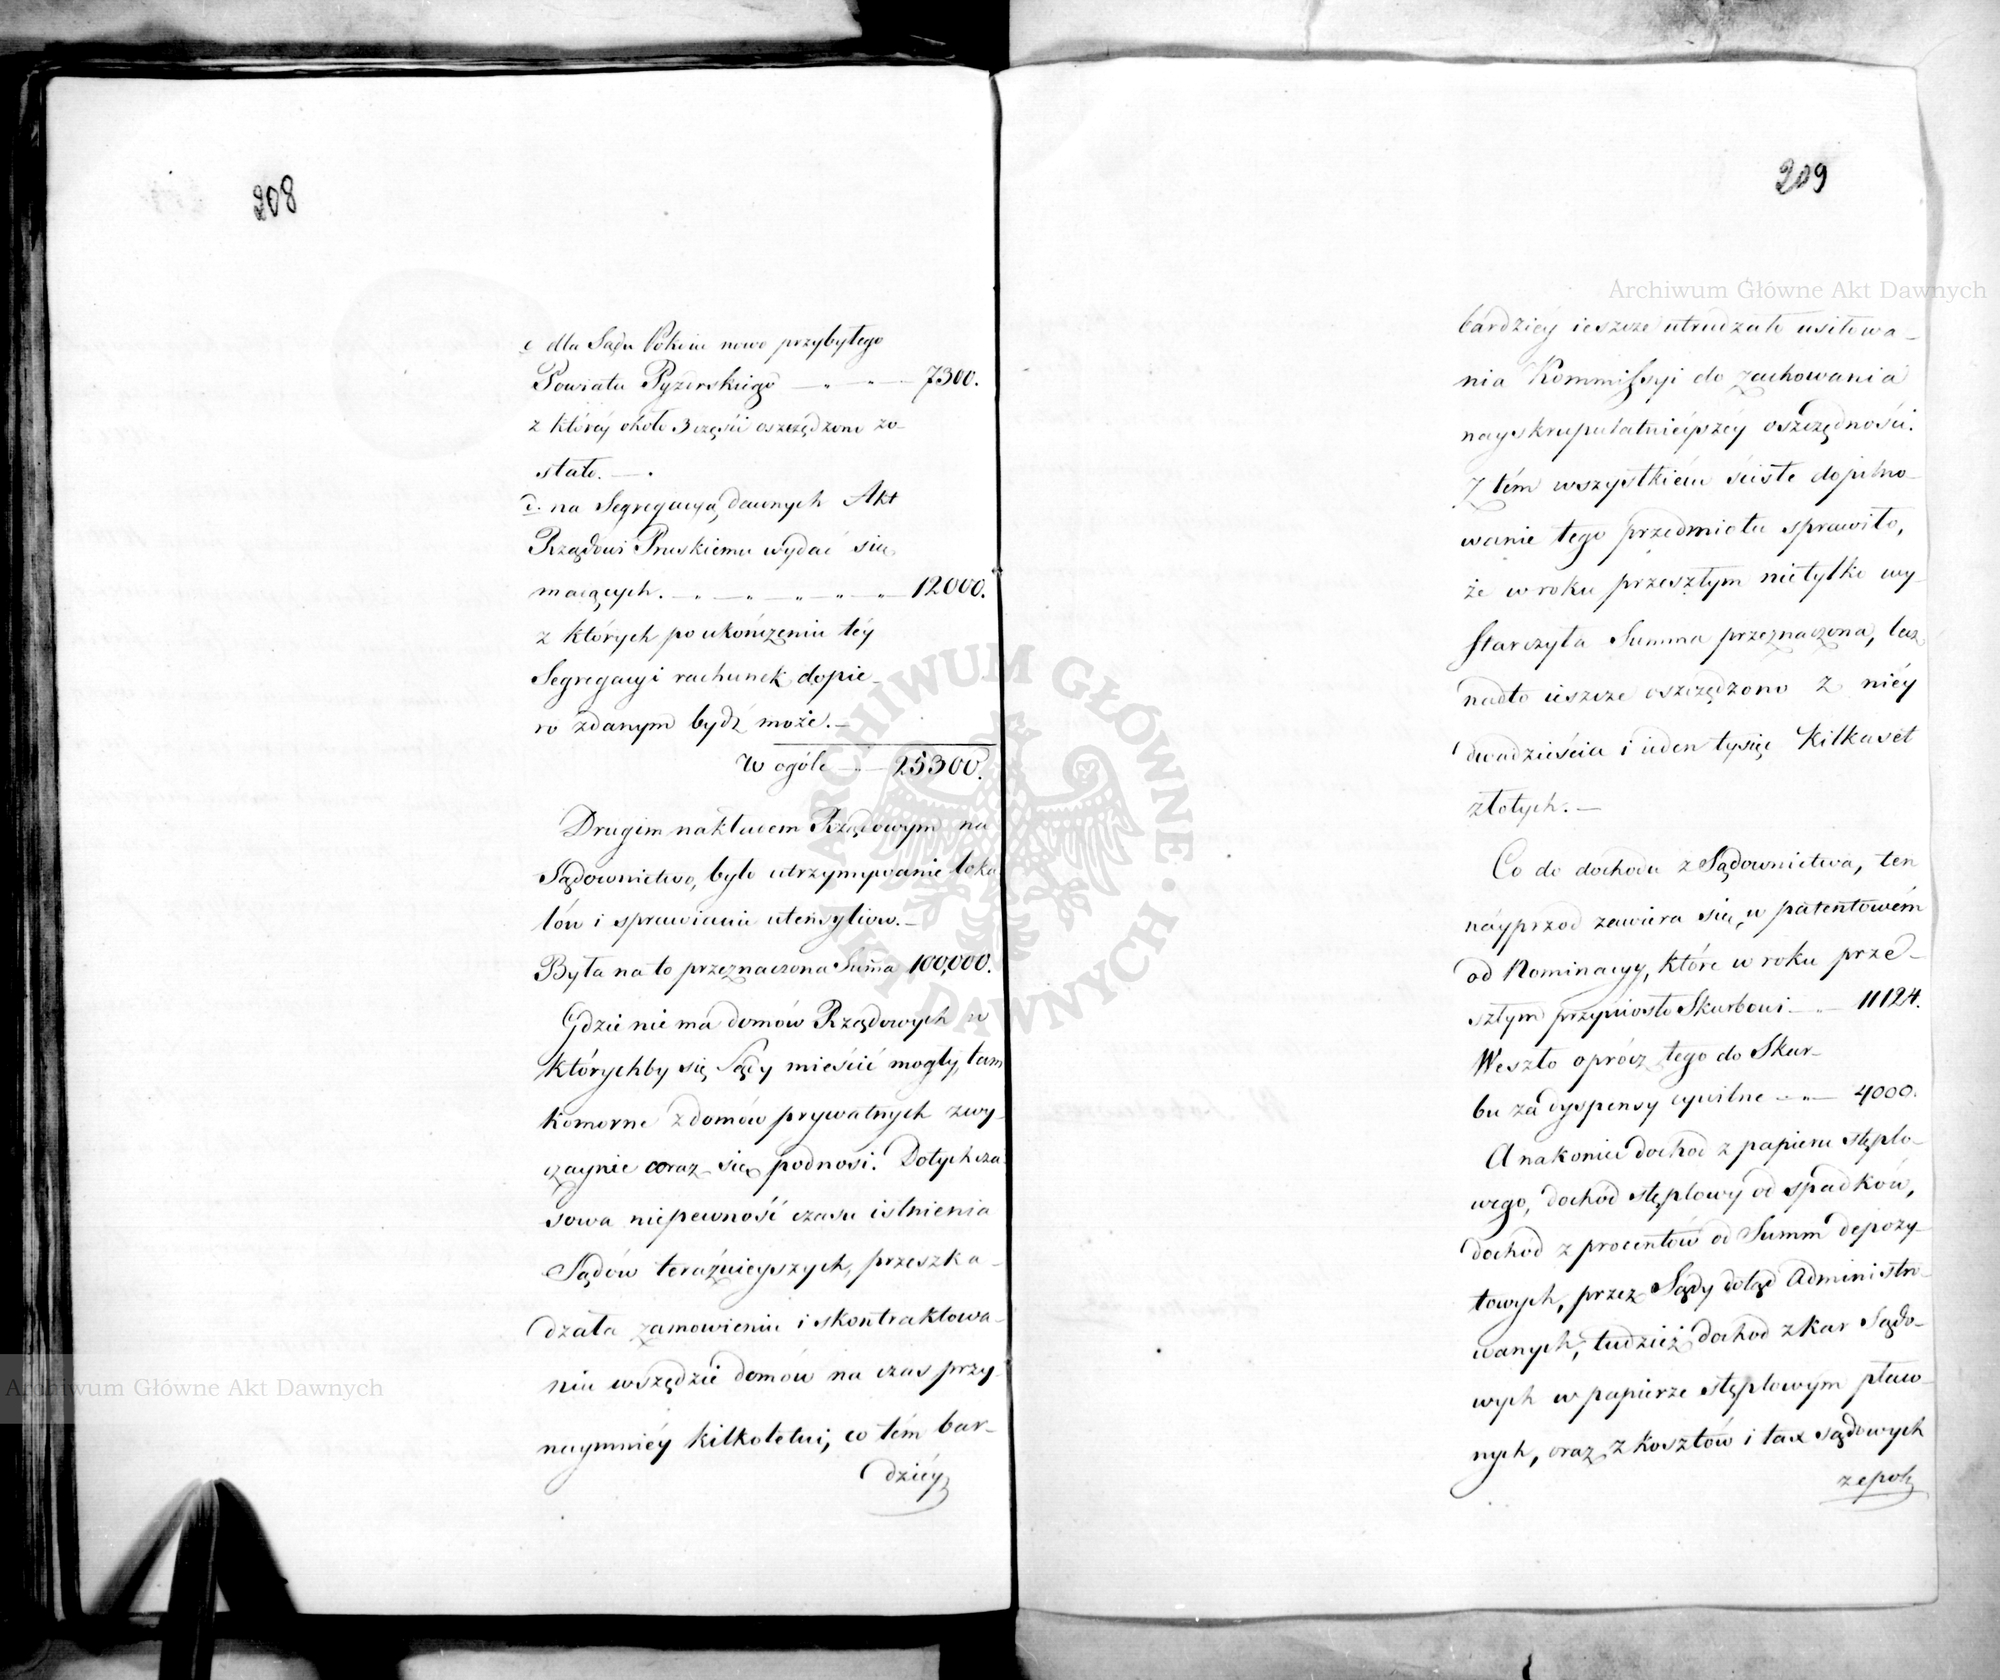 208
c dla Sądu Pokoiu nowo przybytego
Powiatu Pyzdrskiego — „ — „ — 7300.
z któréy około 3 części oszczędzono zo-
stało. — .
d. na Segregacyą dawnych Akt
Rządowi Pruskiemu wydać się
maiących. — „ — „ — „ — „ — „ — 12000.
z których po ukończeniu téy
Segregacyi rachunek dopie-
ro zdanym bydź może. —
W ogóle — „ — 25300.
Drugim nakładem Rządowym na
Sądownictwo, było utrzymywanie loka
lów i sprawianie utensyliow. —
Była na to przeznaczona Summa 100,000.
Gdzie nie ma domów Rządowych w
którychby się Sądy mieścić mogły, tam
komorne z domów prywatnych zwy-
czaynie coraz się podnosi. Dotychcza-
sowa niepewność czasu istnienia
Sądów teraźnieyszych, przeszka-
dzała zamowieniu i skontraktowa-
niu wszędzie domów na czas przy-
naymniéy kilkoletni, co tém bar-
dziéy
209
bardziéy ieszcze utrudzało usiłowa-
nia Kommissyi do zachowania
nayskrupulatnieyszéy oszczędności.
Z tém wszystkiém ściste dopilno-
wanie tego przedmiotu sprawiło,
że w roku przeszłym nietylko wy-
starczyła Summa przeznaczona, lecz
nadto ieszcze oszczędzono z niéy
dwadzieścia i ieden tysięc kilkaset
złotych. —
Co do dochodu z Sądownictwa, ten
náyprzod zawiera się w patentowém
od Nominacyy, które w roku prze-
szłym przyniosło Skarbowi — „ — 11124.
Weszło oprócz tego do Skar-
bu za dyspensy cywilne — „ — 4000.
A nakoniec dochod z papieru stęplo-
wego, dochód stęplowy od spadków,
dochód z procentów od Summ depozy-
towych, przez Sądy dotąd administro-
wanych, tudzież dochod z kar Sądo-
wych w papierze stęplowym pław-
nych, oraz z kosztów i tax sądowych
zepoł
Archiwum Główne Akt Dawnych
Archiwum Główne Akt Dawnych
ARCHIWUM GŁÓWNE AKT DAWNYCH